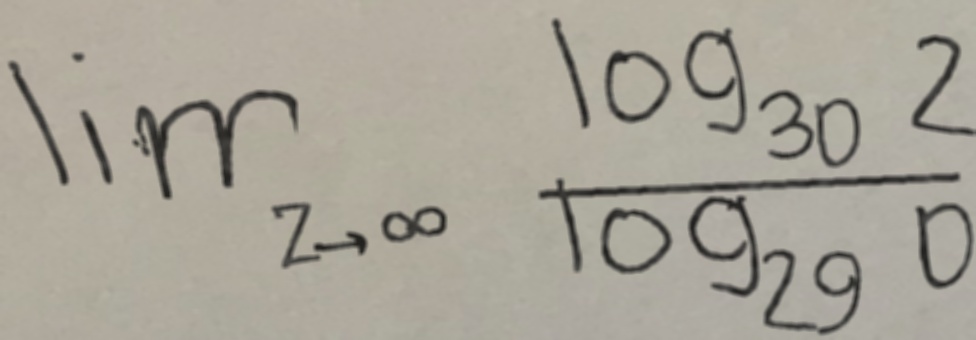 lim z→∞ log₃₀ 2 / log₂₉ 0